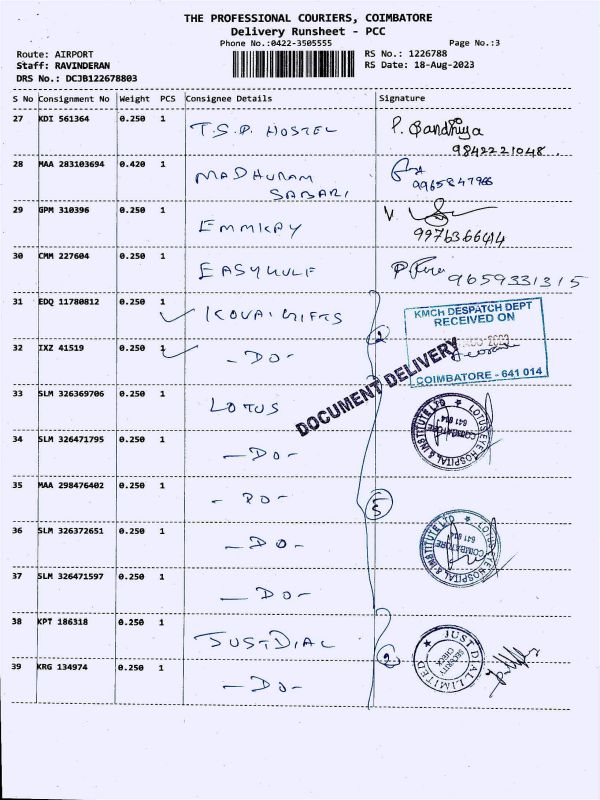 THE PROFESSIONAL COURIERS, COIMBATORE
Delivery Runsheet - PCC
Phone No.:0422-3505555 Page No.:3
Route: AIRPORT RS No.: 1226788
Staff: RAVINDERAN RS Date: 18-Aug-2023
DRS No.: DCJB122678803
S No Consignment No Weight PCS Consignee Details Signature
27 KDI 561364 0.250 1 T.S.P. HOSTEL P. Bandhiya
9842221048.
28 MAA 283103694 0.420 1 MADHURAM
SABARI
9965847966
29 GPM 310396 0.250 1 EMMKAY V
9976366414
30 CMM 227604 0.250 1 9659331315
31 EDQ 11780812 0.250 1 KOVAI GIFTS
KMCH DESPATCH DEPT
RECEIVED ON
COIMBATORE - 641 014
32 IXZ 41519 0.250 1 -DO- 2
DOCUMENT DELIVERY
33 SLM 326369706 0.250 1 LOTUS
LOTUS EYE HOSPITAL & INSTITUTE LTD
COIMBATORE
641 014
34 SLM 326471795 0.250 1 -DO-
35 MAA 298476402 0.250 1 -DO- 5
36 SLM 326372651 0.250 1 -DO-
LOTUS EYE HOSPITAL & INSTITUTE LTD
COIMBATORE
641 014
37 SLM 326471597 0.250 1 -DO-
38 KPT 186318 0.250 1 JUSTDIAL 2
JUST DIAL LIMITED
SECURITY
CHECK
39 KRG 134974 0.250 1 -DO-